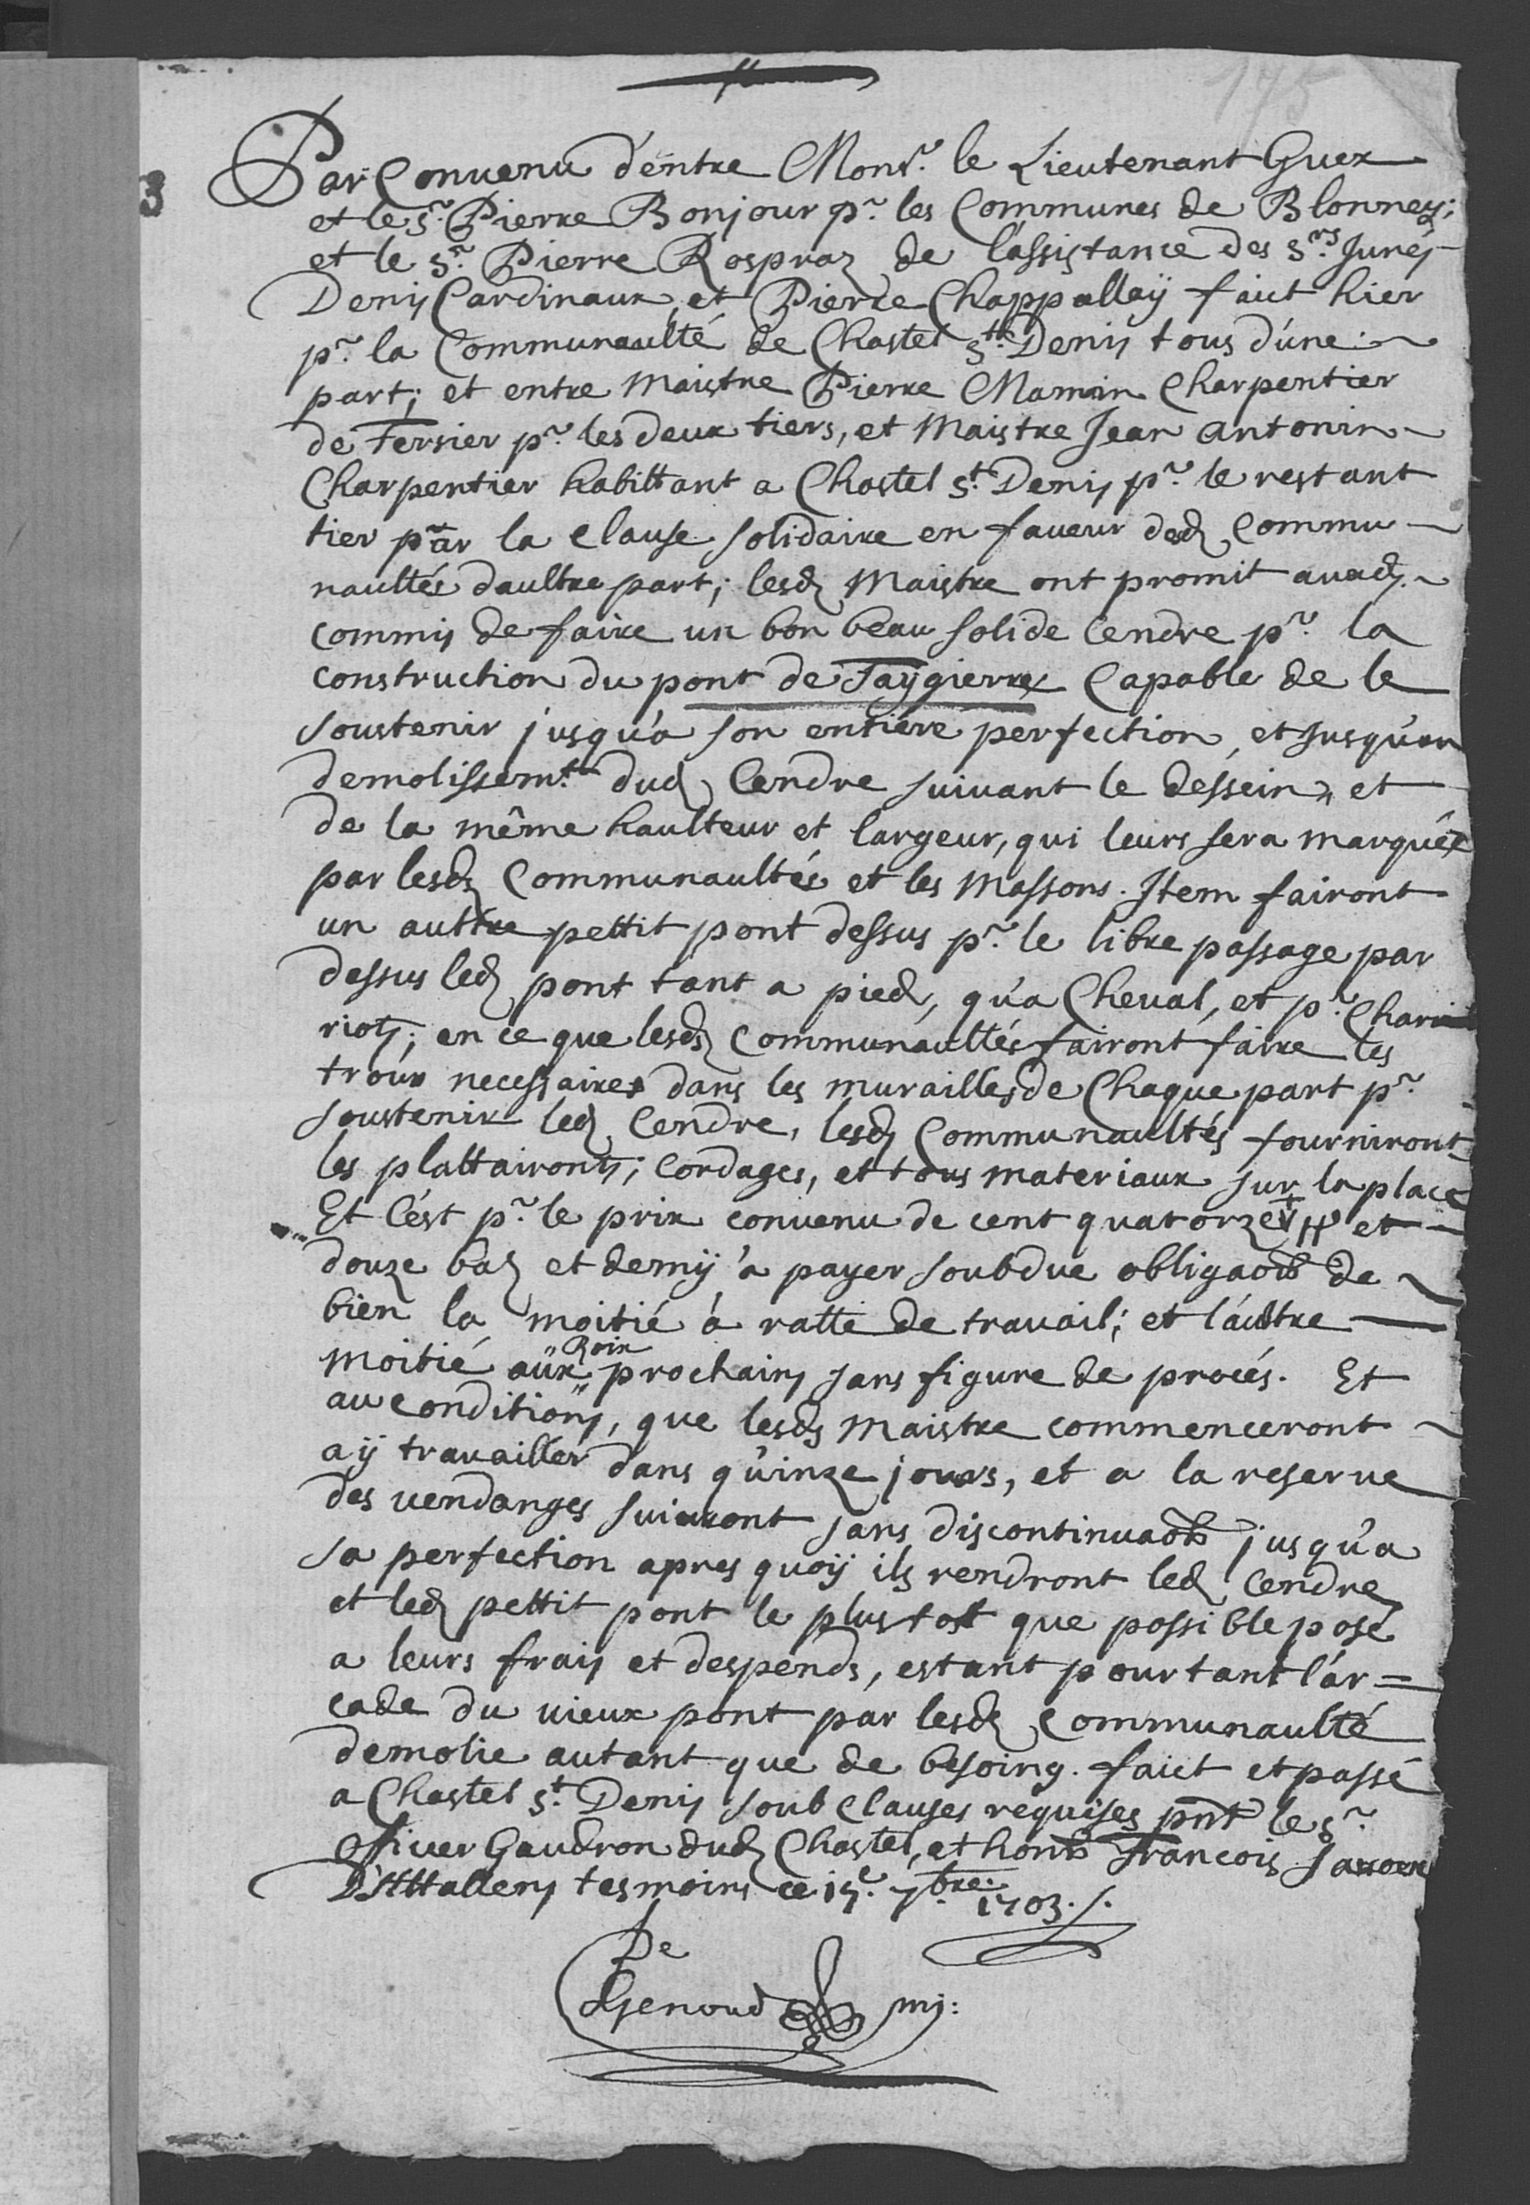 175
3
Par Convenu d'entre Monsr. le Lieutenant Guex
et le Sr. Pierre Bonjour pr. les Communes de Blonney;
et le Sr. Pierre Rospraz de l'assistance des Srs Jurés
Denis Cardinaux et Pierre Chappallaÿ faict hier
pr. la Communaulté de Chastel St. Denis tous d'une
part; et entre Maistre Pierre Mamin Charpentier
de Fersier pr. les deux tiers, et Maistre Jean Antonin
Charpentier habittant a Chastel St. Denis pr. le restant
tier par la Clause solidaire en faveur desd. Commu-
naultés daultre part; lesd. Maistre ont promit auxd.
commis de faire un bon beau solide Cendre pr. la
construction du pont de Faÿgierre Capable de le
soustenir jusqu'a son entiere perfection, et jusqu'au
demolissemt. dud. Cendre suivant le dessein, et
de la même haulteur et largeur, qui leurs sera marquée
par lesd. Communaultés et les Massons. Item fairont
un aultre pettit pont dessus pr. le libre passage par
dessus led. pont tant a pied, qu'a Cheval, et pr. Char
riots; en ce que lesd. Communaultés fairont faire les
troux necessaires dans les murailles de Chaque part pr.
soustenir led. Cendre, lesd. Communaultés fourniront
les plattairons; Cordages, et tous materiaux sur la place
Et C'est pr. le prix convenu de cent quatorze et
douze baz et demÿ à payer soub due obligaon de
bien la moitié à ratte de travail; et l'aultre
moitié aux Roix prochains sans figure de procés. Et
au conditions, que lesd. Maistre commenceront
a ÿ travailler dans quinze jours, et a la reserve
des vendanges suivront sans discontinuaon jusqu'a
sa perfection apres quoÿ ils rendront led. Cendre
et led. pettit pont le plustost que possible posé
a leurs frais et despends, estant pourtant l'ar=
cade du vieux pont par lesd. Communaulté
demolie autant que de besoing. faict et passé
a Chastel St. Denis soub Clauses requises pnt le Sr.
officier Gaudron dud. Chastel, et hon. Francois
D'Attallens tesmoins ce 7bre. 1703.
De
Genoud mj: